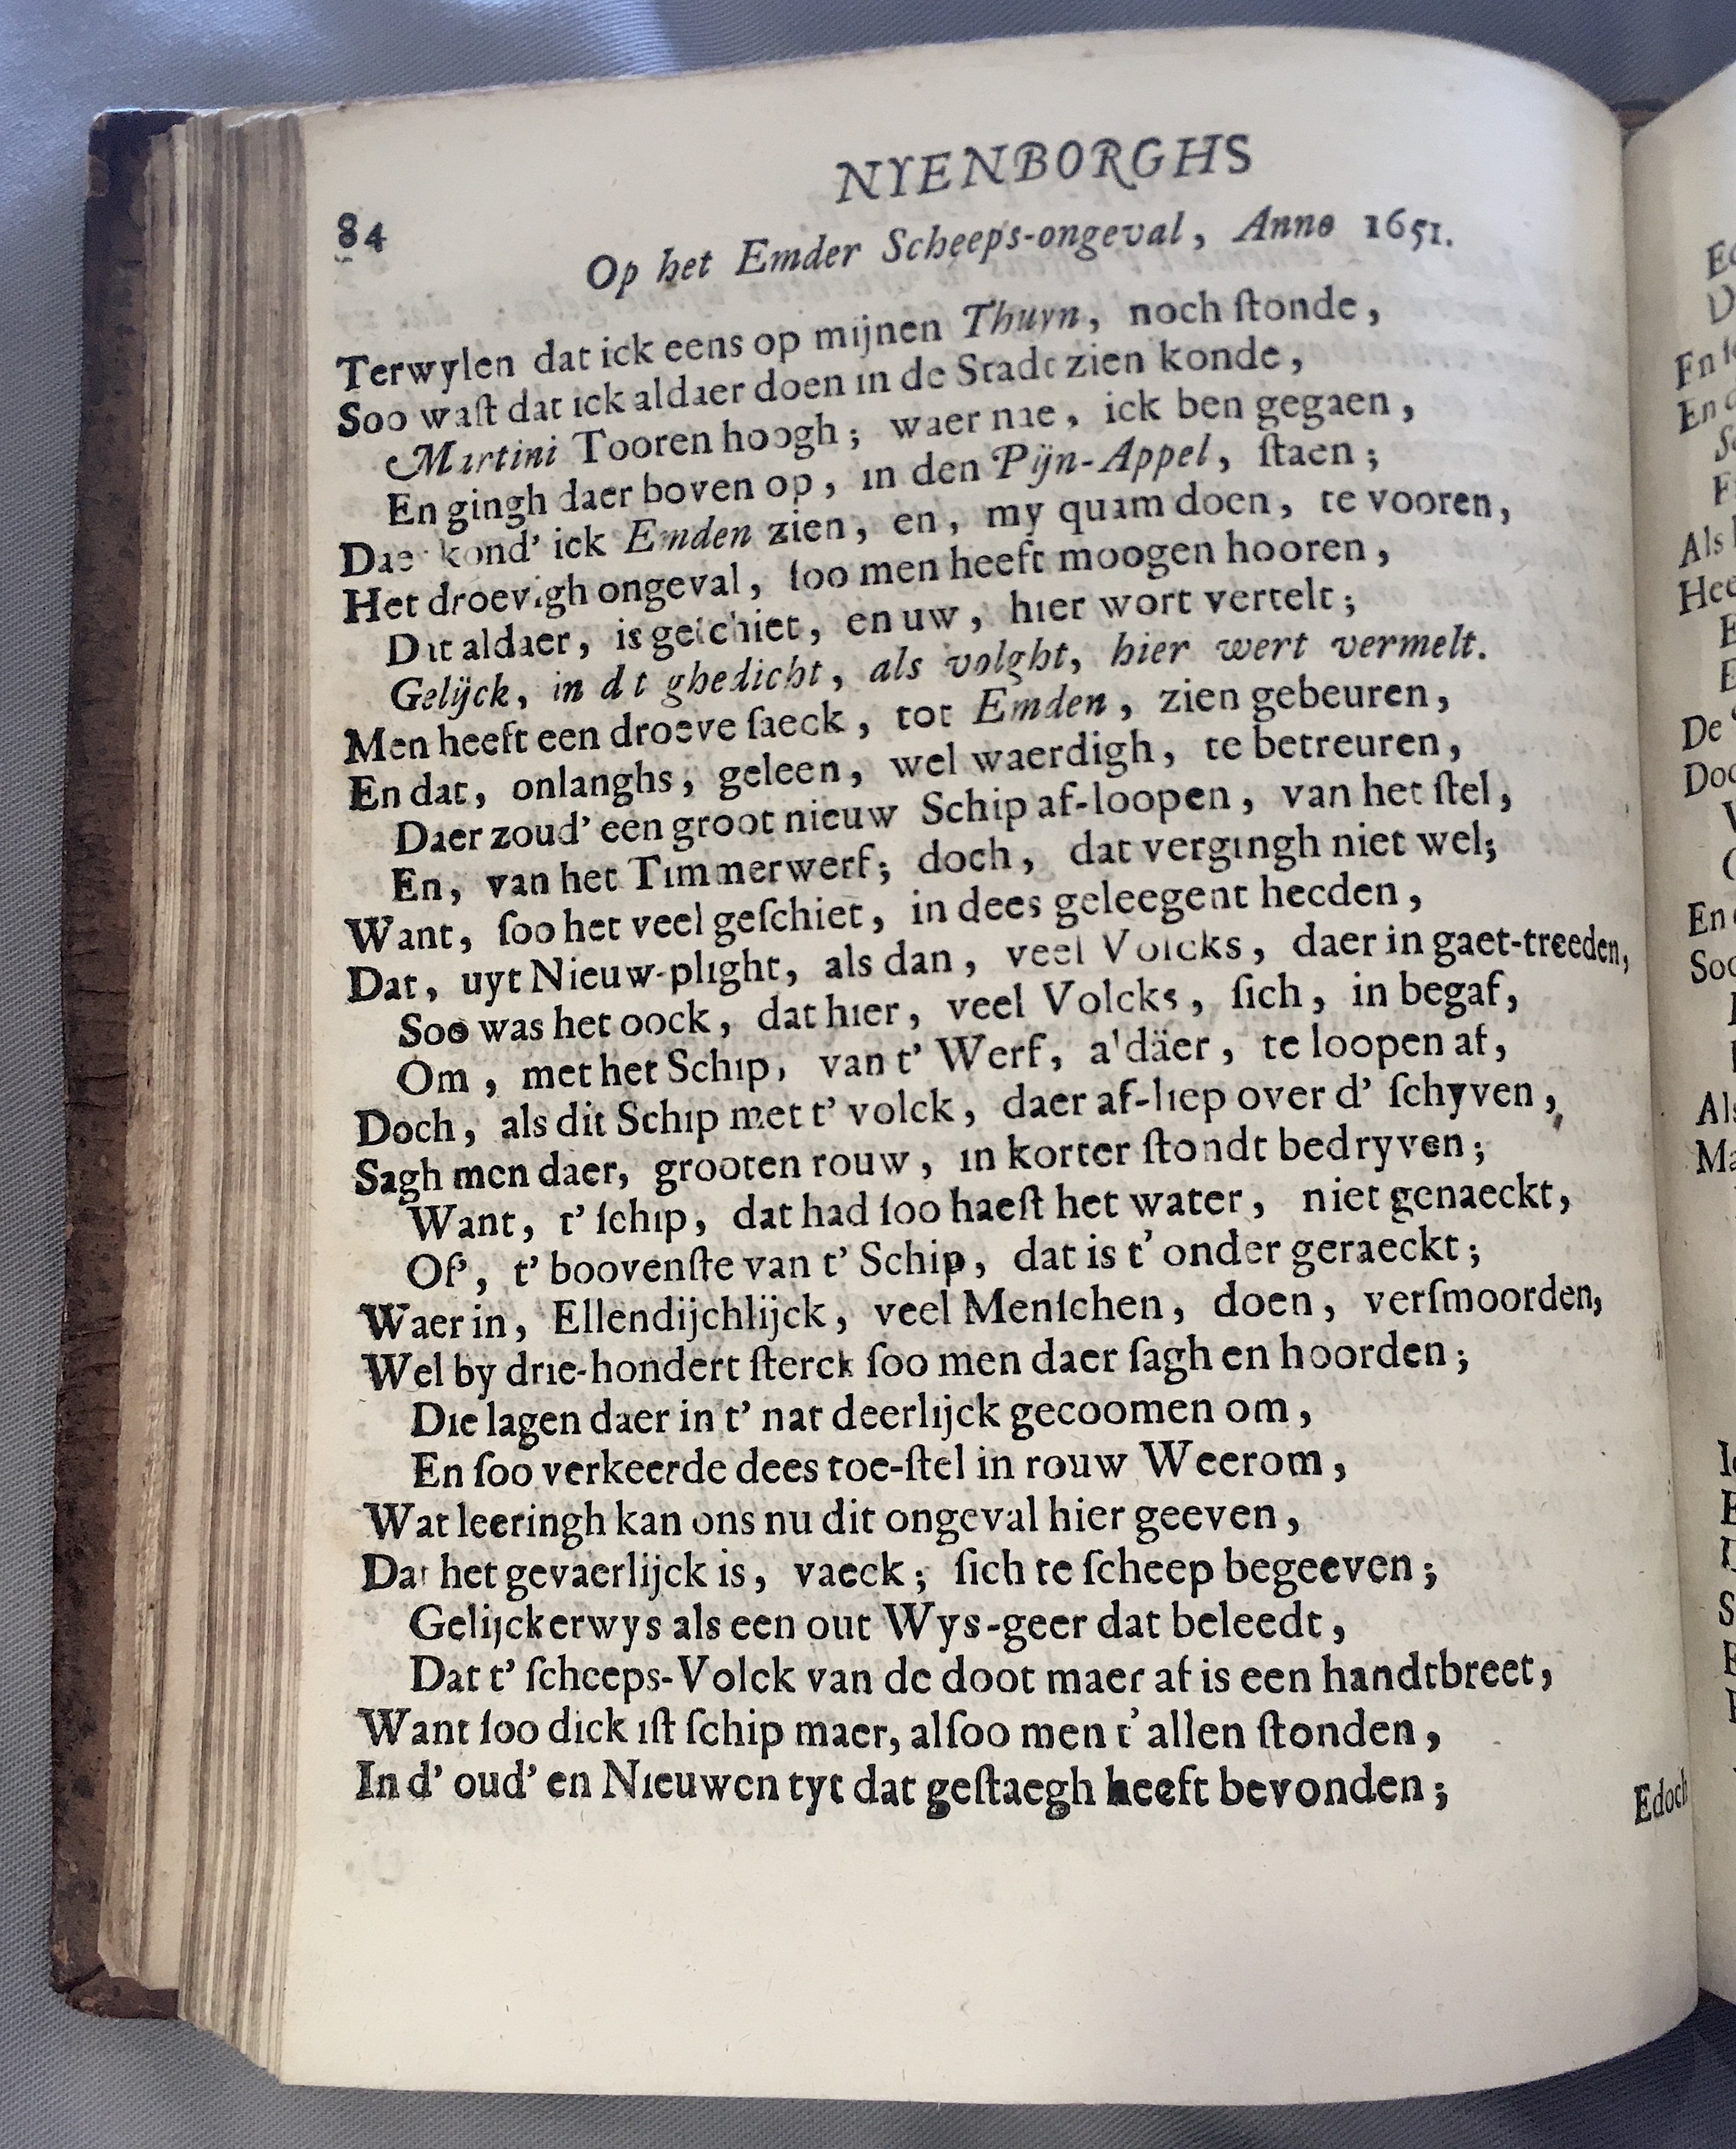 NYENBORGHS
84
Op het Emder Scheeps-ongeval, Anno 1651.
Terwylen dat ick eens op mijnen Thuyn, noch ſtonde,
Soo waſt dat ick aldaer doen in de Stadt zien konde,
Martini Tooren hoogh; waer nae, ick ben gegaen,
En gingh daer boven op, in den Pijn-Appel, ſtaen;
Dae kond' ick Emden zien, en, my quam doen, te vooren,
Het droevigh ongeval, ſoo men heeft moogen hooren,
Dit aldaer, is geſchiet, en uw, hier wort vertelt;
Gelijck, in dt ghedicht, als volght, hier wert vermelt.
Men heeft een droeve ſaeck, tot Emden, zien gebeuren,
En dat, onlanghs, geleen, wel waerdigh, te betreuren,
Daer zoud' een groot nieuw Schip af-loopen, van het ſtel,
En, van het Timmerwerf; doch, dat vergingh niet wel;
Want, ſoo het veel geſchiet, in dees geleegent heeden,
Dat, uyt Nieuw-plight, als dan, veel Volcks, daer in gaet-treeden,
Soo was het oock, dat hier, veel Volcks, ſich, in begaf,
Om, met het Schip, van t' Werf, a'däer, te loopen af,
Doch, als dit Schip met t' volck, daer af-liep over d' ſchyven,
Sagh men daer, grooten rouw, in korter ſtondt bedryven;
Want, t' ſchip, dat had ſoo haeſt het water, niet genaeckt,
Of, t' boovenſte van t' Schip, dat is t' onder geraeckt;
Waer in, Ellendijchlijck, veel Menſchen, doen, verſmoorden,
Wel by drie-hondert ſterck ſoo men daer ſagh en hoorden;
Die lagen daer in t' nat deerlijck gecoomen om,
En ſoo verkeerde dees toe-ſtel in rouw Weerom,
Wat leeringh kan ons nu dit ongeval hier geeven,
Dat het gevaerlijck is, vaeck; ſich te ſcheep begeeven;
Gelijckerwys als een out Wys-geer dat beleedt,
Dat t' ſcheeps-Volck van de doot maer af is een handtbreet,
Want ſoo dick iſt ſchip maer, alſoo men t' allen ſtonden,
In d' oud' en Nieuwen tyt dat geſtaegh heeft bevonden;
Edoch